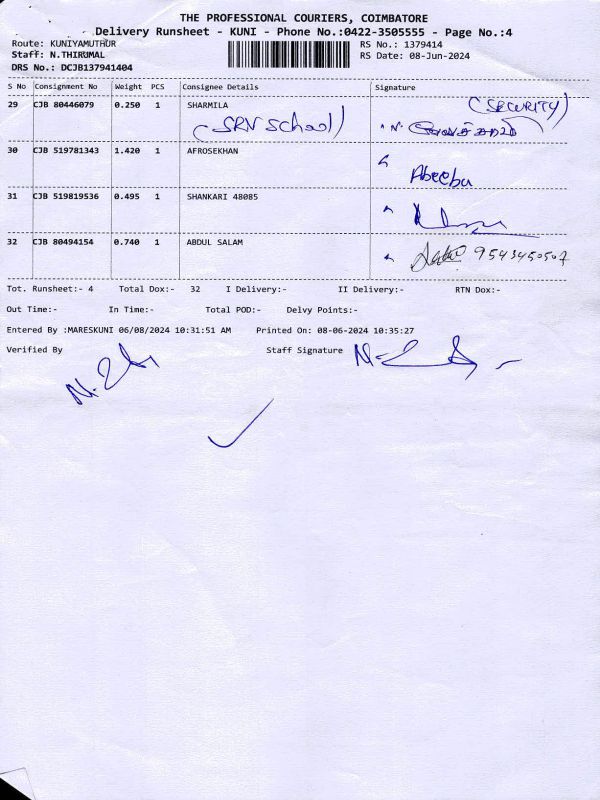 THE PROFESSIONAL COURIERS, COIMBATORE
Delivery Runsheet - KUNI - Phone No.:0422-3505555 - Page No.:4
Route: KUNIYAMUTHUR
RS No.: 1379414
Staff: N.THIRUMAL
RS Date: 08-Jun-2024
DRS No.: DCJB137941404
S No Consignment No Weight PCS Consignee Details Signature
29 CJB 80446079 0.250 1 SHARMILA (SECURITY)
(SRN School)
30 CJB 519781343 1.420 1 AFROSEKHAN
Abeeba
31 CJB 519819536 0.495 1 SHANKARI 48085
32 CJB 80494154 0.740 1 ABDUL SALAM
9543450507
Tot. Runsheet:- 4 Total Dox:- 32 I Delivery:- II Delivery:- RTN Dox:-
Out Time:- In Time:- Total POD:- Delvy Points:-
Entered By :MARESKUNI 06/08/2024 10:31:51 AM Printed On: 08-06-2024 10:35:27
Verified By Staff Signature